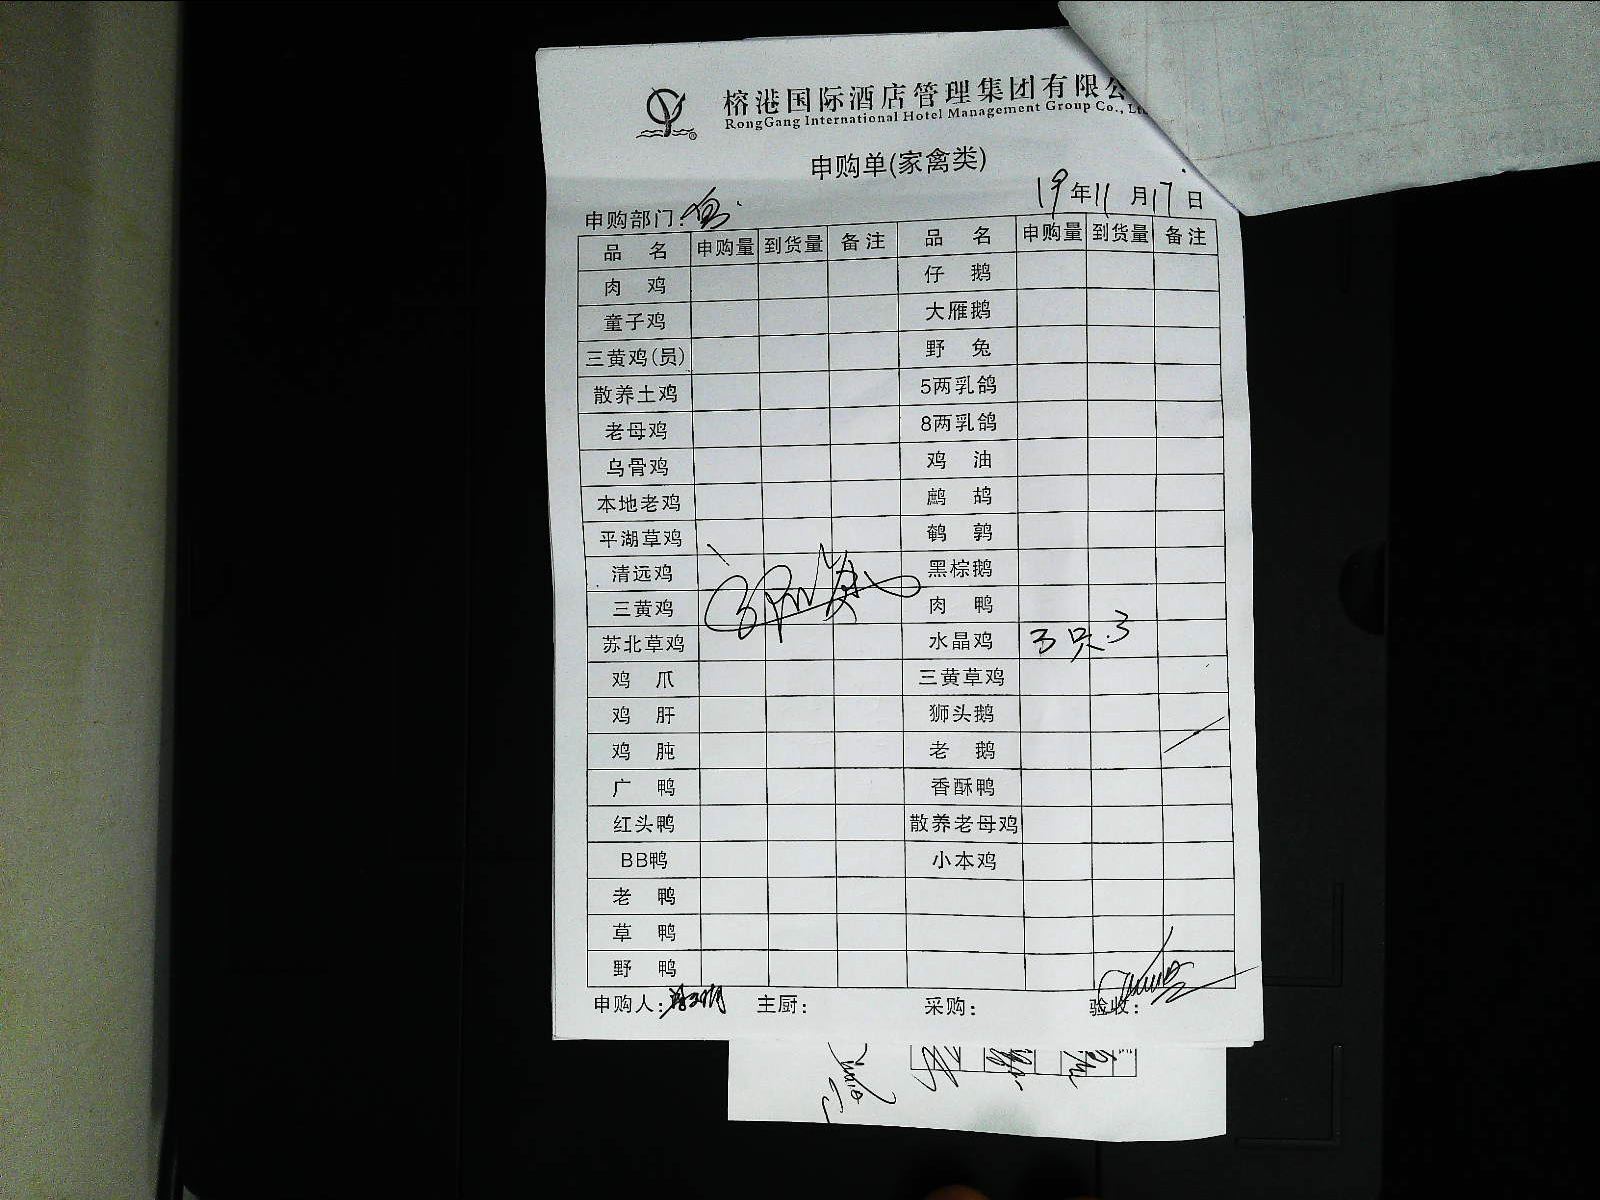 榕港国际酒店管理集团有限公
RongGang International Hotel Management Group Co., Lt
申购单(家禽类)
19年11月17日
申购部门:
品 名 申购量 到货量 备注 品 名 申购量 到货量 备注
肉 鸡 仔 鹅
童子鸡 大雁鹅
三黄鸡(员) 野 兔
散养土鸡 5两乳鸽
老母鸡 8两乳鸽
乌骨鸡 鸡 油
本地老鸡 鹧 鸪
平湖草鸡 鹌 鹑
清远鸡 黑棕鹅
三黄鸡 肉 鸭
苏北草鸡 水晶鸡 3只 3
鸡 爪 三黄草鸡
鸡 肝 狮头鹅
鸡 肫 老 鹅
广 鸭 香酥鸭
红头鸭 散养老母鸡
BB鸭 小本鸡
老 鸭
草 鸭
野 鸭
申购人: 主厨: 采购: 验收: